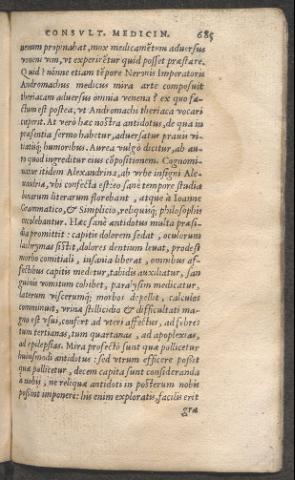 CONSVLT. MEDICIN. 685
uenum propinabat, mox medicamẽtum aduersus
uenenum, ut experiretur quid posset præstare.
Quid? nõnne etiam tẽpore Neronis Imperatoris
Andromachus medicus mira arte composuit
theriacam aduersus omnia uenena? ex quo fa-
ctum est postea, ut Andromachi theriaca uocari
cœperit. At verò hæc nostra antidotus, de qua in
præsentia sermo habetur, aduersatur prauis ui-
tiatisq; humoribus. Aurea vulgò dicitur, ab au-
ro quod ingreditur eius cõpositionem. Cognomi-
natur itidem Alexandrina, ab vrbe insigni Ale-
xandria, vbi confecta est: eo sanè tempore studia
bonarum literarum florebant, atque à Ioanne
Grammatico, & Simplicio, reliquisq; philosophis
incolebantur. Hæc sanè antidotus multa præsi-
dia promittit: capitis dolorem sedat, oculorum
lachrymas sistit, dolores dentium leuat, prodest
morbo comitiali, insania liberat, omnibus af-
fectibus capitis medetur, tabidis auxiliatur, san
guinis vomitum cohibet, paralysim medicatur,
laterum viscerumq; morbos depellit, calculos
comminuit, vrinæ stillicidio & difficultati ma-
gno est vsui, confert ad vteri affectus, ad febres
tum tertianas, tum quartanas, ad apoplexias,
ad epilepsias. Mira profectò sunt quæ pollicetur
huiusmodi antidotus: sed vtrum efficere possit
quæ pollicetur, decem capita sunt consideranda
à nobis, ne reliquæ antidoti in posterum nobis
possint imponere: his enim exploratis, facilis erit
gra